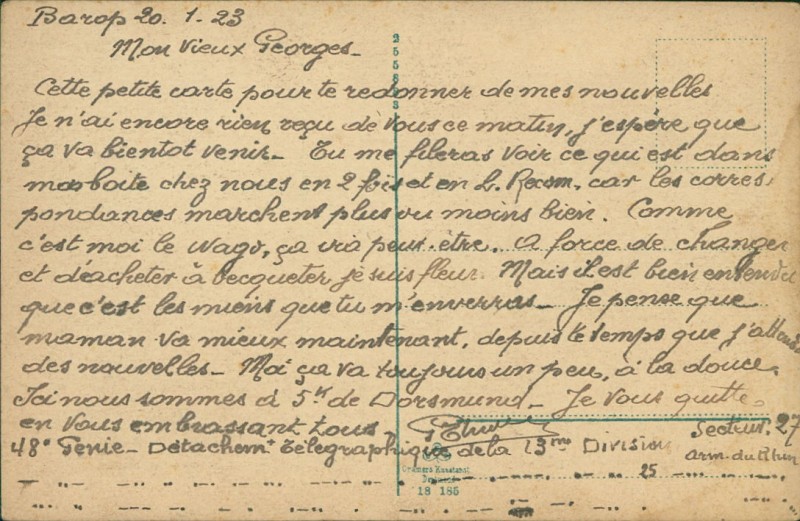 Barop 20. 1. 23
Mon vieux Georges_
Cette petite carte pour te redonner de mes nouvelles
Je n'ai encore rien reçu de vous ce matin, j'espère que
ça va bientot venir_ Tu me fileras voir ce qui est dans
ma boite chez nous en 2 fois et en L. Recom. car les corres
pondances marchent plus ou moins bien. Comme
c'est moi le wago, ça ira peut-être. A force de changer
et d'acheter à becqueter je suis fleur. Mais il est bien entendu
que c'est les miens que tu m'enverras_ Je pense que
maman va mieux maintenant, depuis le temps que j'attends
des nouvelles_ Moi ça va toujours un peu, à la douce.
Ici nous sommes à 5k de Dorsmund_ Je vous quitte
en vous embrassant tous_
48e Génie_ Détachemt Télégraphique de la 13me Division
Secteur. 27
arm. du Rhin
25583
Cramers Kunstanst.
Dortmund
18 185
25